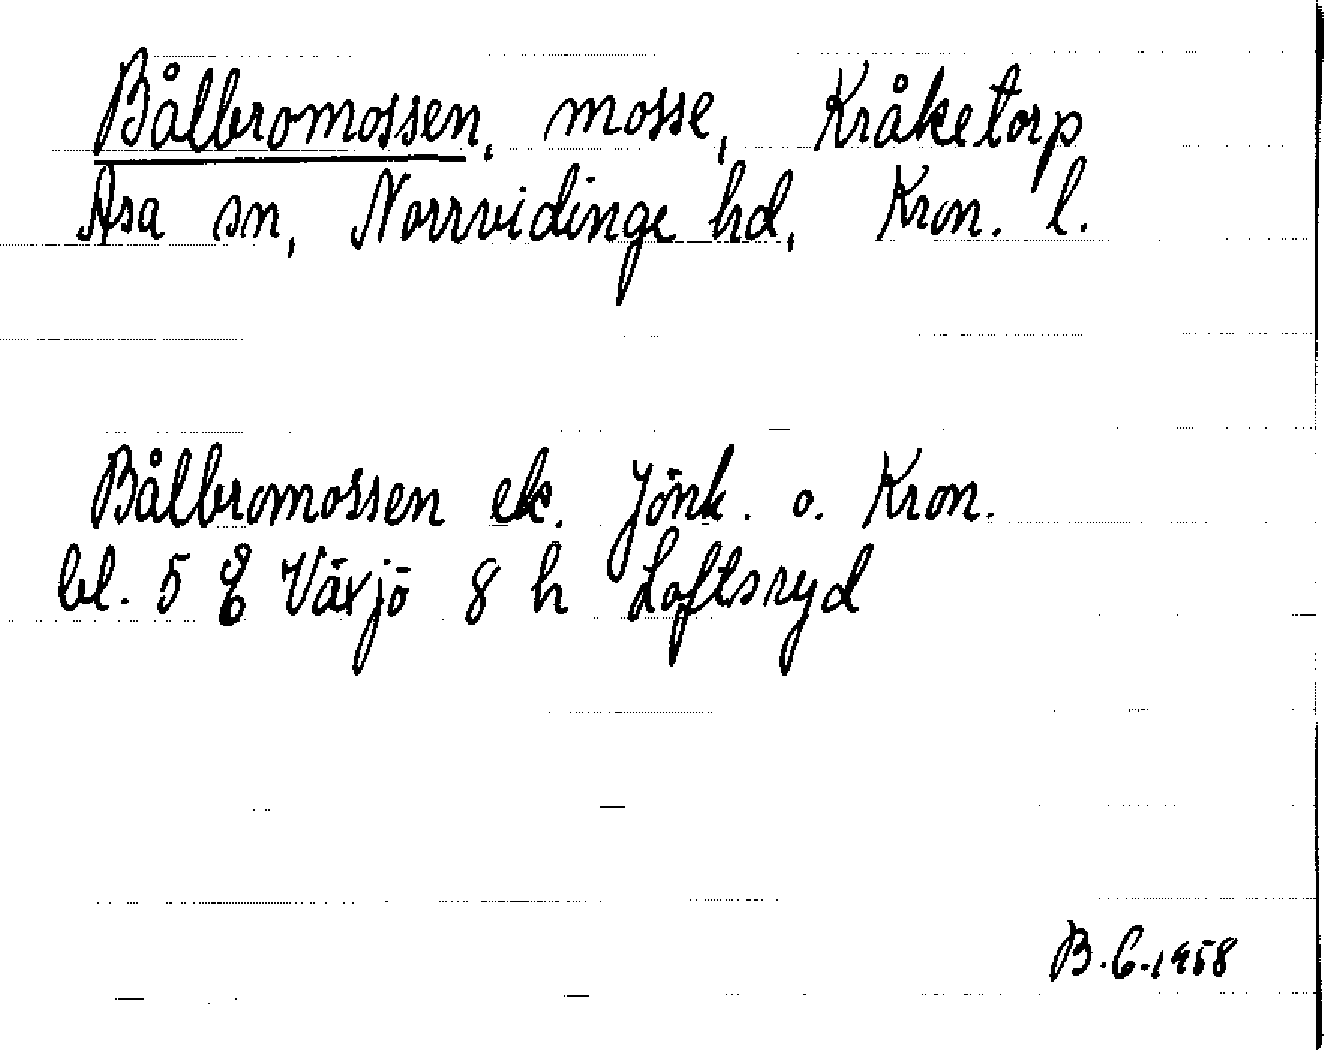 Bålbromossen, mosse, Kråketorp
Asa sn, Norrvidinge hd, Kron. l.
Bålbromossen ek. Jönk. o. Kron.
bl. 5 Växjö 8 h Loftsryd
B.G.1958